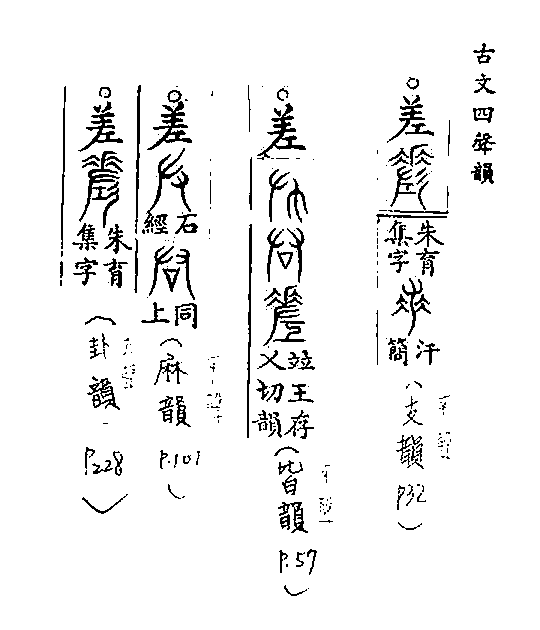 古文四聲韻
○差
朱育集字
汗簡
(支韻 P32)
○差
竝王存乂切韻
(皆韻 P.57)
○差
石經
同上
(麻韻 P.101)
○差
朱育集字
(卦韻 P.228)